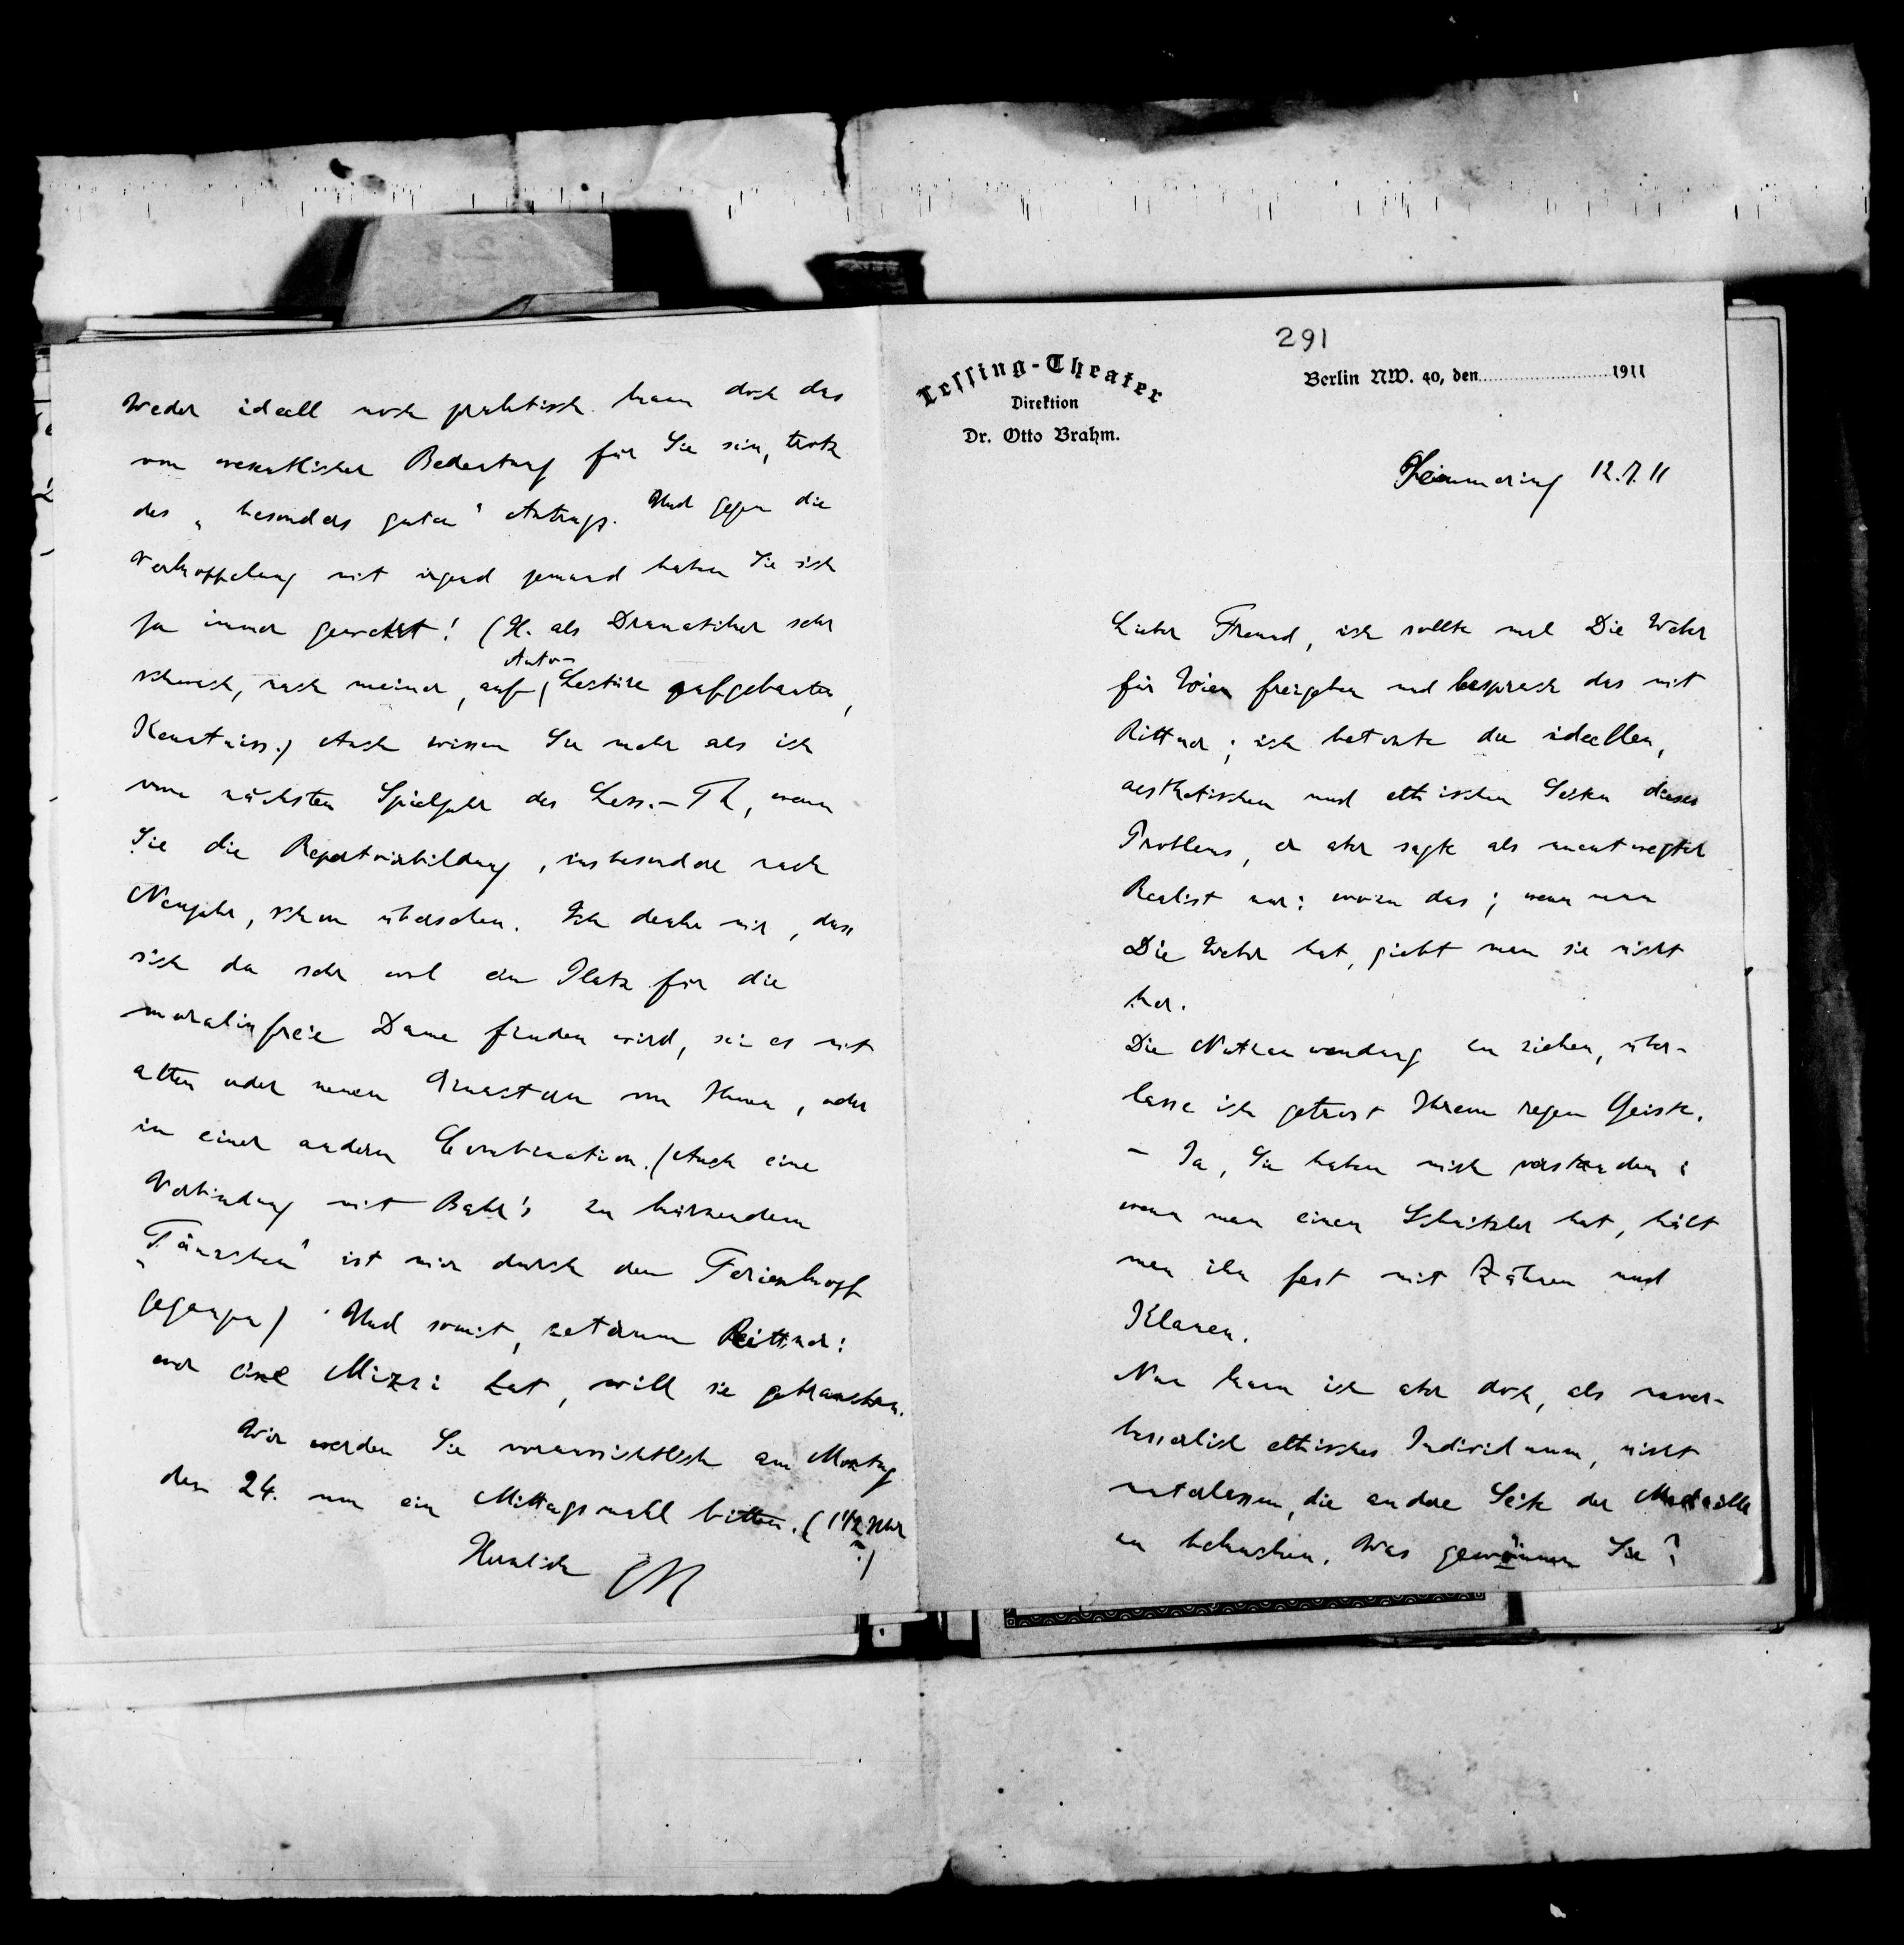 291
Lessing-Theater
Direktion
Dr. Otto Brahm.
Berlin NW. 40, den 1911
Semmering 12.7.11
Lieber Freund, ich sollte mal Die Weber
für Wien freigeben und besprach das mit
Rittner; ich betonte die ideellen,
aesthetischen und ethischen Seiten dieses
Problems, er aber sagte als unentwegter
Realist nur: wozu das; wenn man
Die Weber hat, giebt man sie nicht
her.
Die Nutzanwendung zu ziehen, über-
lasse ich getrost Ihrem regen Geiste.
– Ja, Sie haben mich verstanden:
wenn man einen Schnitzler hat, hält
man ihn fest mit Zähnen und
Klauen.
Nun kann ich aber doch, als unver-
besserlich ethisches Individuum, nicht
unterlassen, die andere Seite der Medaille
zu beleuchten. Was gewönnen Sie?
Weder ideell noch praktisch kann doch das
von wesentlicher Bedeutung für Sie sein, trotz
des „besonders guten" Antrags. Und gegen die
Verkoppelung mit irgend jemand haben Sie sich
ja immer gewehrt! (H. als Dramatiker sehr
schwach, nach meiner, auf Auto-Lectüre aufgebauten,
Kenntniss.) Auch wissen Sie mehr als ich
vom nächsten Spieljahr des Less.-Th, wenn
Sie die Repertoirbildung, insbesondere nach
Neujahr, schon übersehen. Ich denke mir, dass
sich da sehr wol ein Platz für die
moralinfreie Dame finden wird, sei es mit
alten oder neuen Einactern von Ihnen, oder
in einer andern Combination. (Auch eine
Verbindung mit Bahr's zu kürzendem
„Tänzchen" ist mir durch den Ferienkopf
gegangen) Und somit, ceterum Rittner:
wer eine Mizzi hat, will sie gebrauchen.
Wir werden Sie voraussichtlich am Montag
den 24. um ein Mittagsmahl bitten. (1 1/2 Uhr
?)
Herzlich